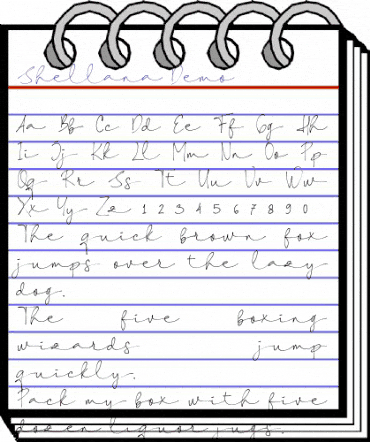 Shellana Demo
Aa Bb Cc Dd Ee Ff Gg Hh
Ii Jj Kk Ll Mm Nn Oo Pp
Qq Rr Ss Tt Uu Vv Ww
Xx Yy Zz 1 2 3 4 5 6 7 8 9 0
The quick brown fox
jumps over the lazy
dog.
The five boxing
wizards jump
quickly.
Pack my box with five
dozen liquor jugs.